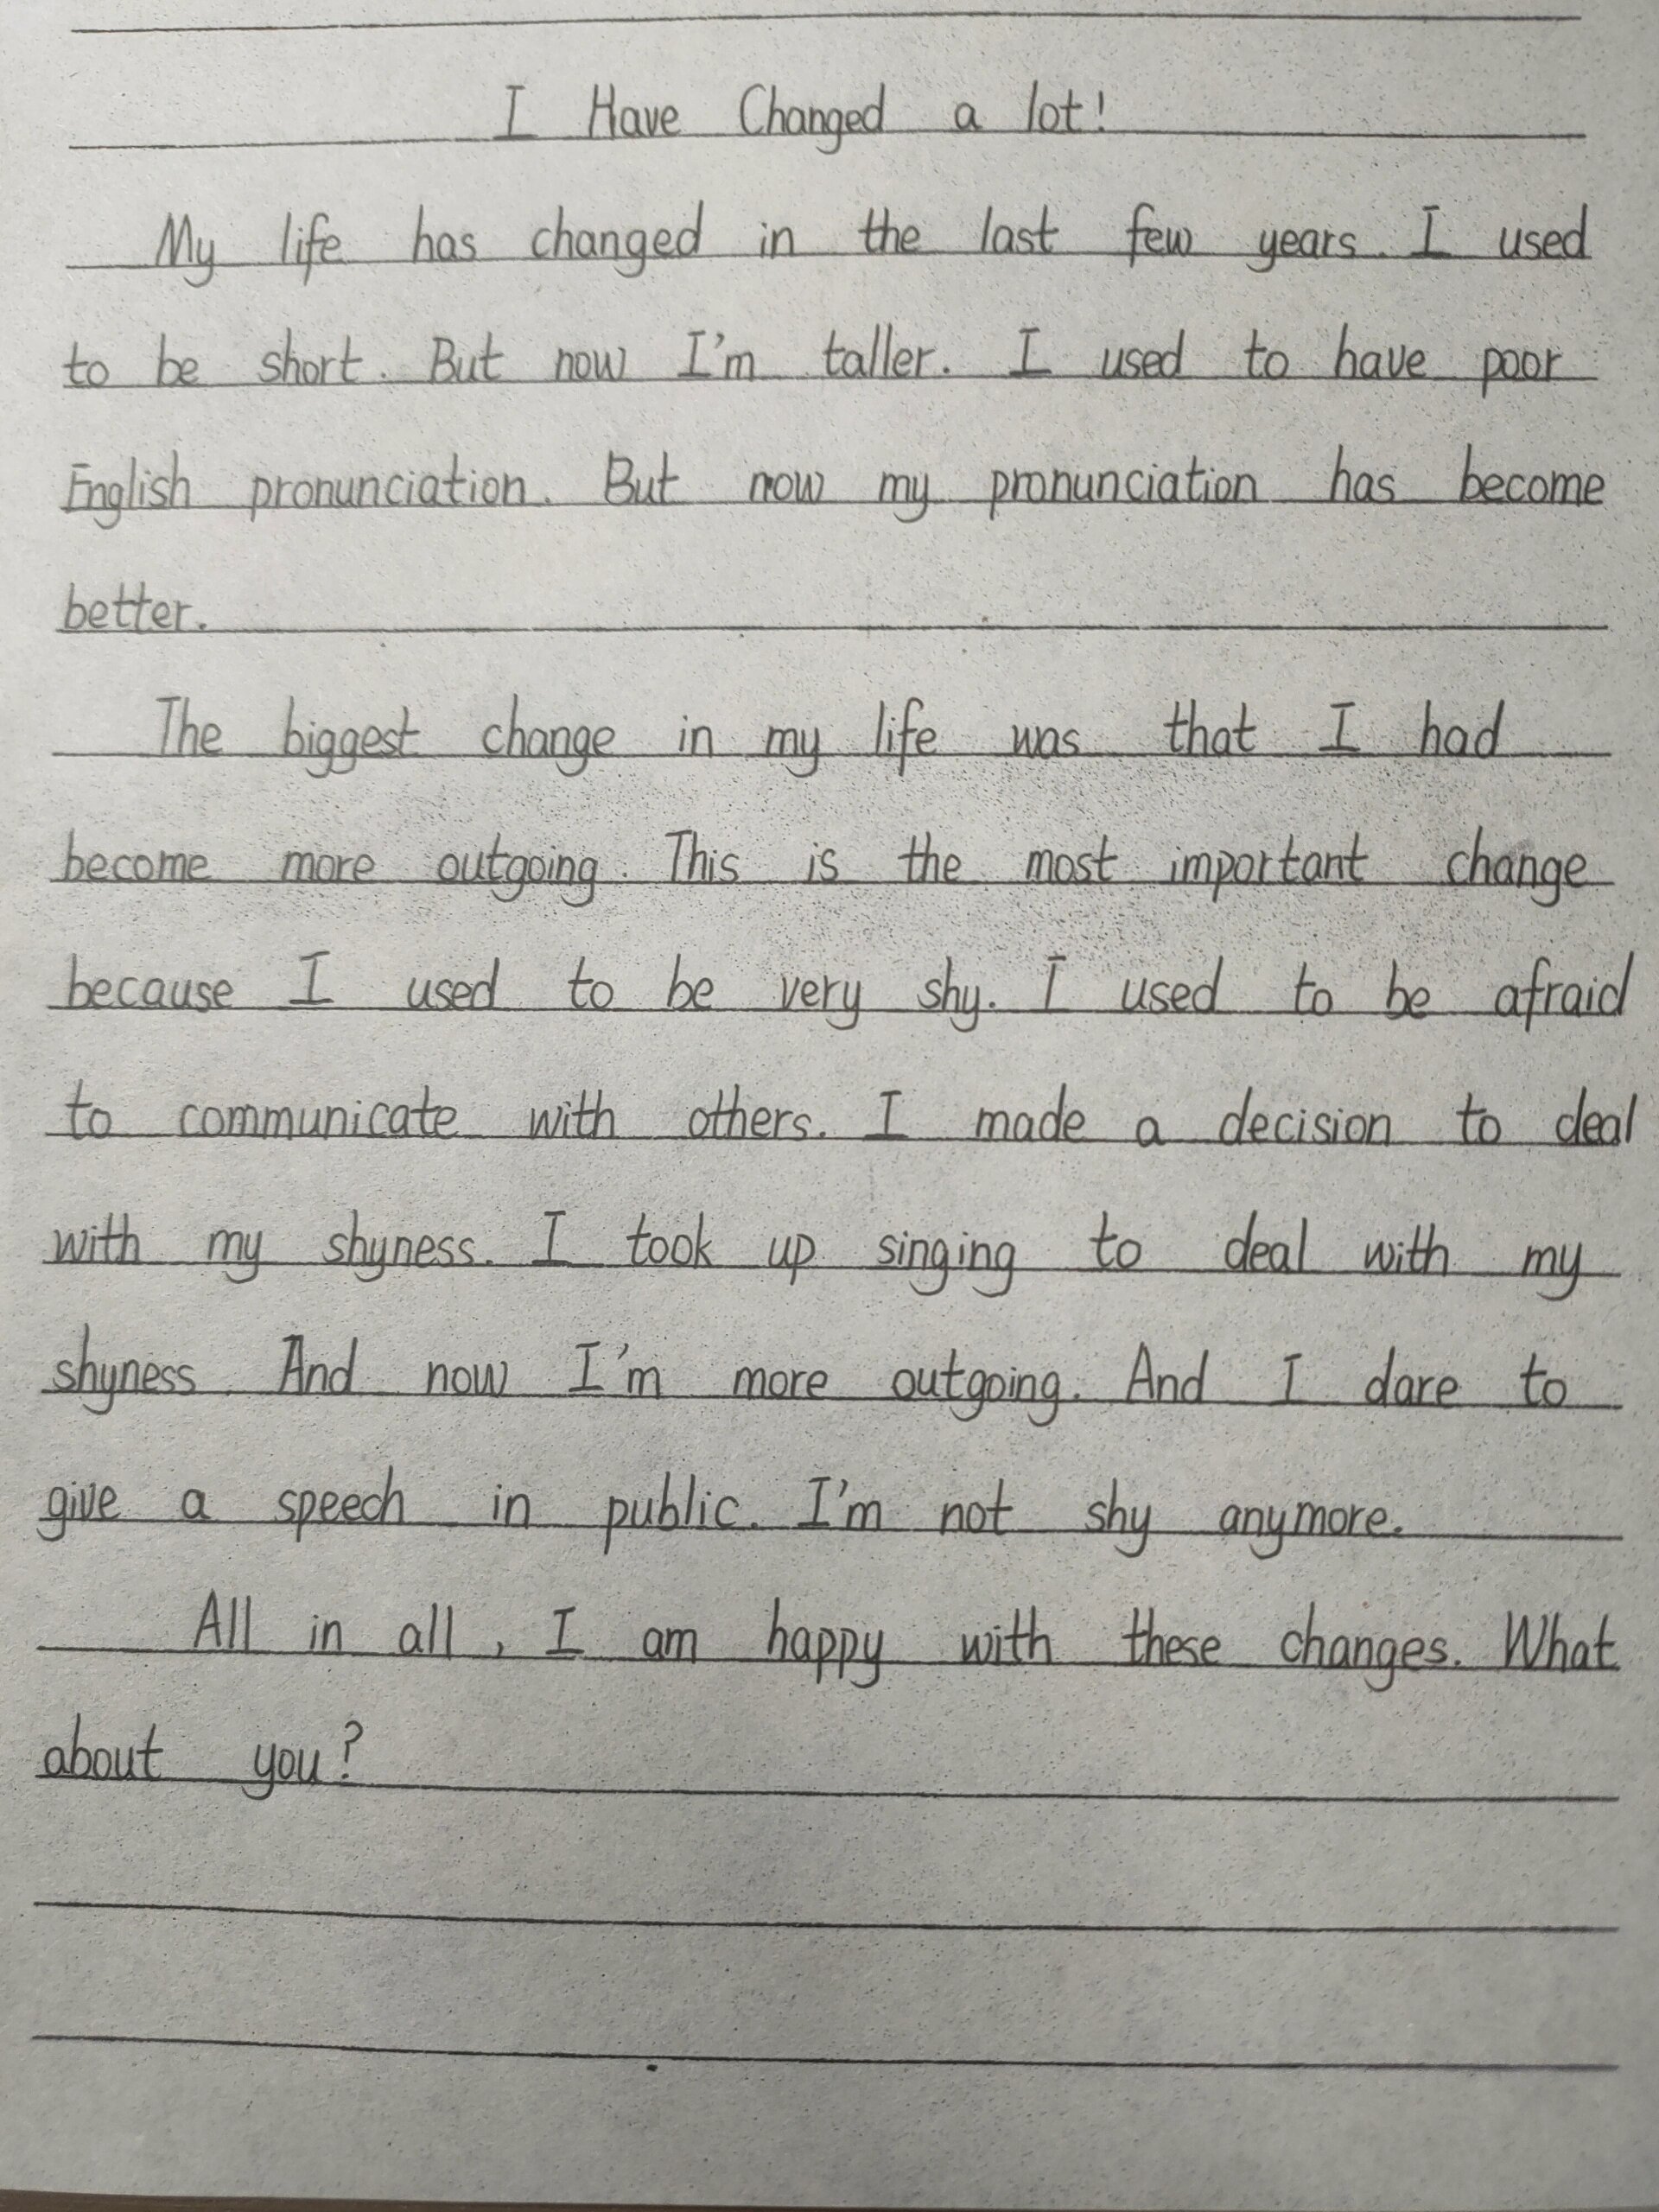 I Have Changed a lot!
My life has changed in the last few years. I used
to be short. But now I'm taller. I used to have poor
English pronunciation. But now my pronunciation has become
better.
The biggest change in my life was that I had
become more outgoing. This is the most important change
because I used to be very shy. I used to be afraid
to communicate with others. I made a decision to deal
with my shyness. I took up singing to deal with my
shyness. And now I'm more outgoing. And I dare to
give a speech in public. I'm not shy anymore.
All in all, I am happy with these changes. What
about you?